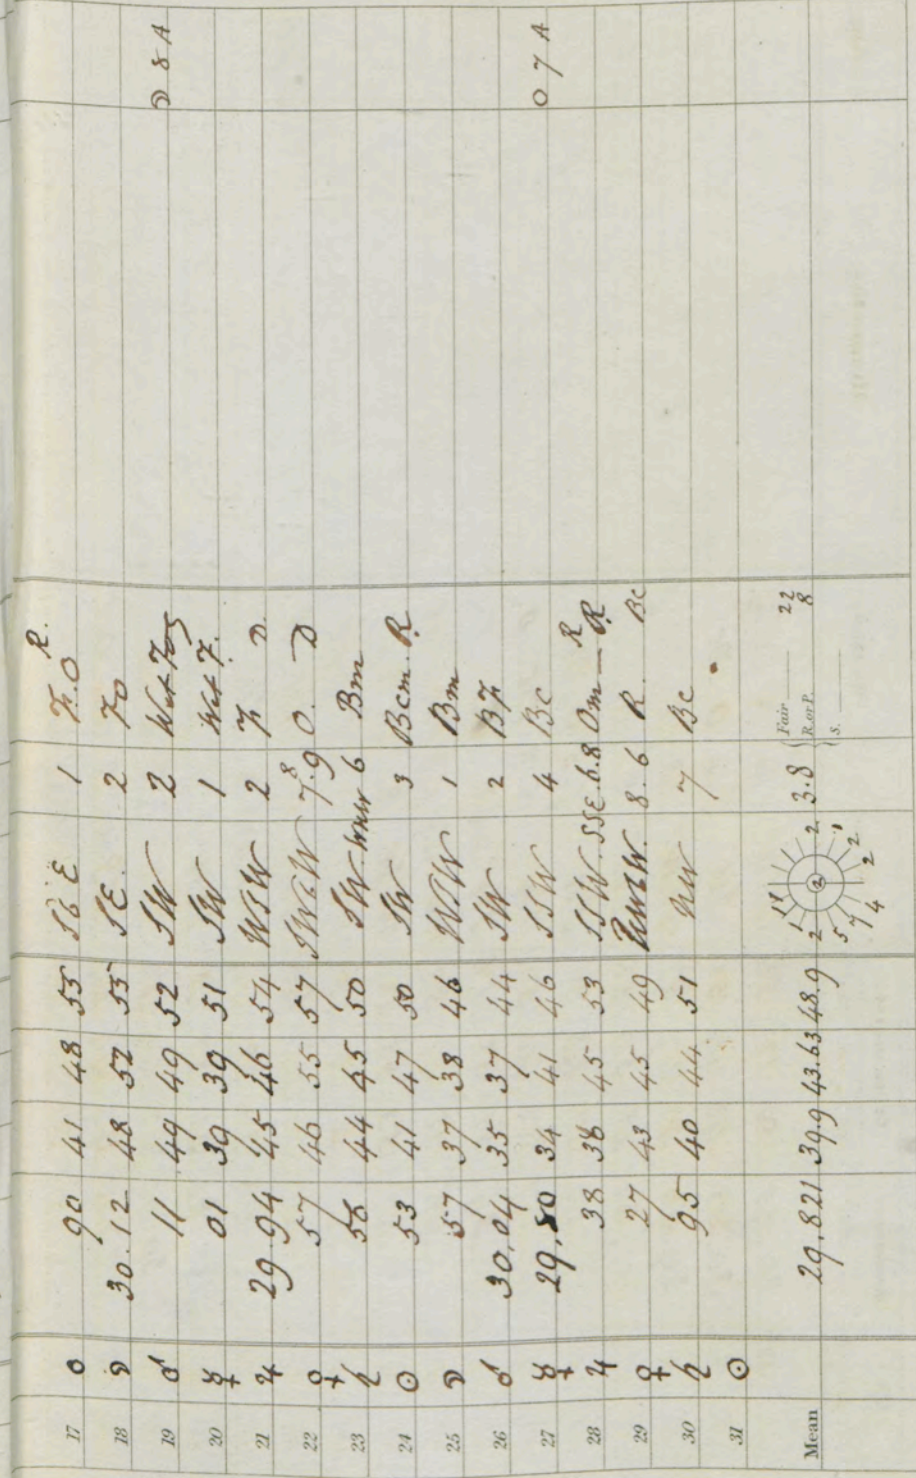 17 ☉ 90 41 48 55 SbE 1 F.O R.
18 ☽ 30.12 48 52 55 SE 2 FO
19 ♂ 11 49 49 52 SW 2 Wet Fog ☽ 8 A
20 ☿ 01 39 39 51 SW 1 Wet F.
21 ♃ 29.94 45 46 54 WSW 2 F D
22 ♀ 57 46 55 57 7.8.9 O. D
23 ♄ 58 44 45 50 SW WNW 6 Bm
24 ☉ 53 41 47 50 SW 3 Bcm R.
25 ☽ 57 37 38 46 WSW 1 Bm
26 ♂ 30.04 35 37 44 SW 2 BF
27 ☿ 29.80 34 41 46 SSW 4 Bc O 7 A
28 ♃ 38 38 45 53 SSW. SSE 6.8 Om — R R
29 ♀ 27 43 45 49 8.6 R Bc
30 ♄ 95 40 44 51 NW 7 Bc
31 ☉
Mean 29.821 39.9 43.63 48.9 3.8 Fair 22
R. or P. 8
S.